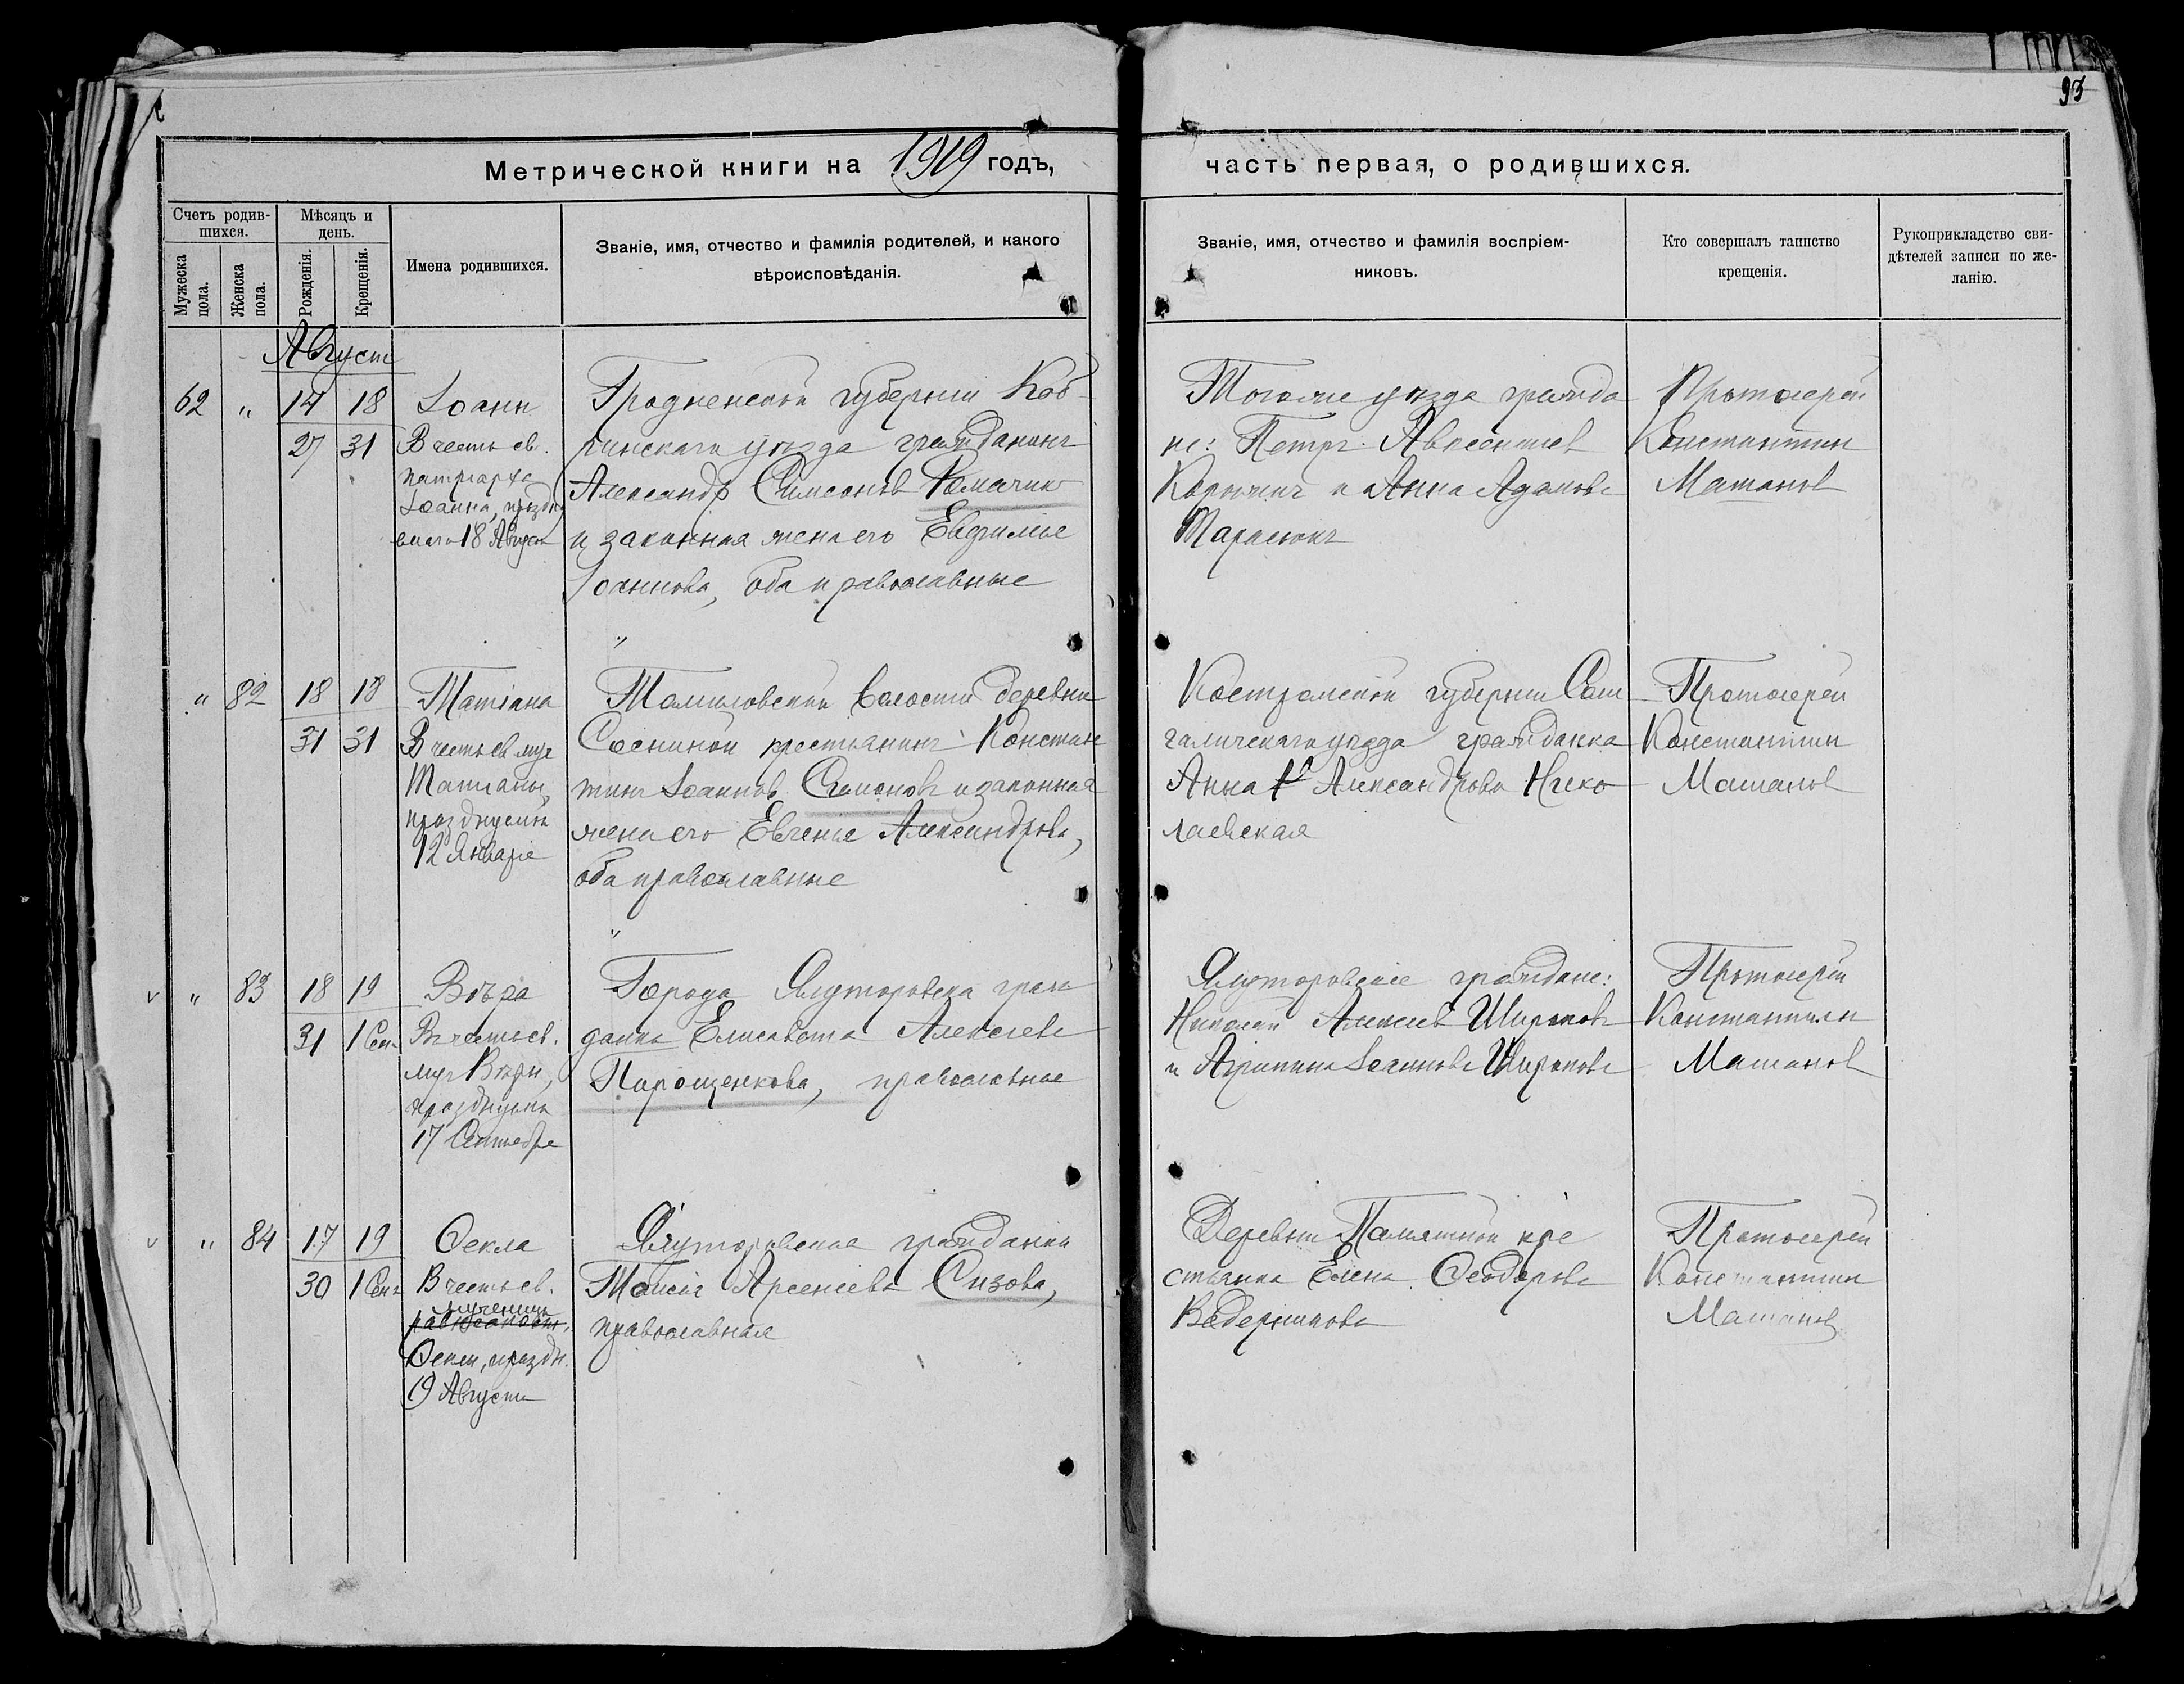 93
Метрической книги на 1919 годъ,
часть первая, о родившихся.
Счетъ родив-
шихся.
Мужеска
пола.
Женска
пола.
Мѣсяцъ и
день.
Рожденія.
Крещенія.
Имена родившихся.
Званіе, имя, отчество и фамилія родителей, и какого
вѣроисповѣданія.
Званіе, имя, отчество и фамилія воспріем-
никовъ.
Кто совершалъ таинство
крещенія.
Рукоприкладство сви-
дѣтелей записи по же-
ланію.
Август
62 " 14 18
27 31
Іоанн
В честь св.
патриарха
Іоанна, праздн
емаго 18 Август
Гродненской губернии Коб-
ринскаго уѣзда гражданинъ
Александр Симеонов
и законная жена его Евфимія
Іоаннова, оба православные
Тогоже уѣзда гражда
не: Петръ
и Анна Адамова
Тарасюкъ
Протоиерей
Константин
Матанов
" 82 18 18
31 31
Татіана
В честь св муч
Татианы,
празднуемыя
12 Января
Томиловской волости деревни
Сосниной крестьянинъ Констан
тин Іоаннов и законная
жена его Евгенія Александрова,
оба православные
Костромской губернии Сол
галичскаго уѣзда гражданка
Анна Александрова Нико
лаевская
Протоиерей
Константин
Матанов
v " 83 18 19
31 1 Сен
Вѣра
В честь св.
муч Вѣры,
празднуемыя
17 Сентября
Города Ялуторовска граж
данка Елисавета Алексеева
Пирощенкова, православная
Ялуторовские граждане:
Николай Алексеев Широков
и Агрипина Іоаннова Широкова
Протоиерей
Константин
Матанов
v " 84 17 19
30 1 Сен
Ѳекла
В честь св.
мученицы
равноапост.
Ѳеклы, праздн.
19 Августа
Ялуторовская гражданка
Таисія Арсениева Сизова,
православная
Деревни Памятной кре
стьянка Елена Ѳеодорова
Ведерникова
Протоиерей
Константин
Матанов